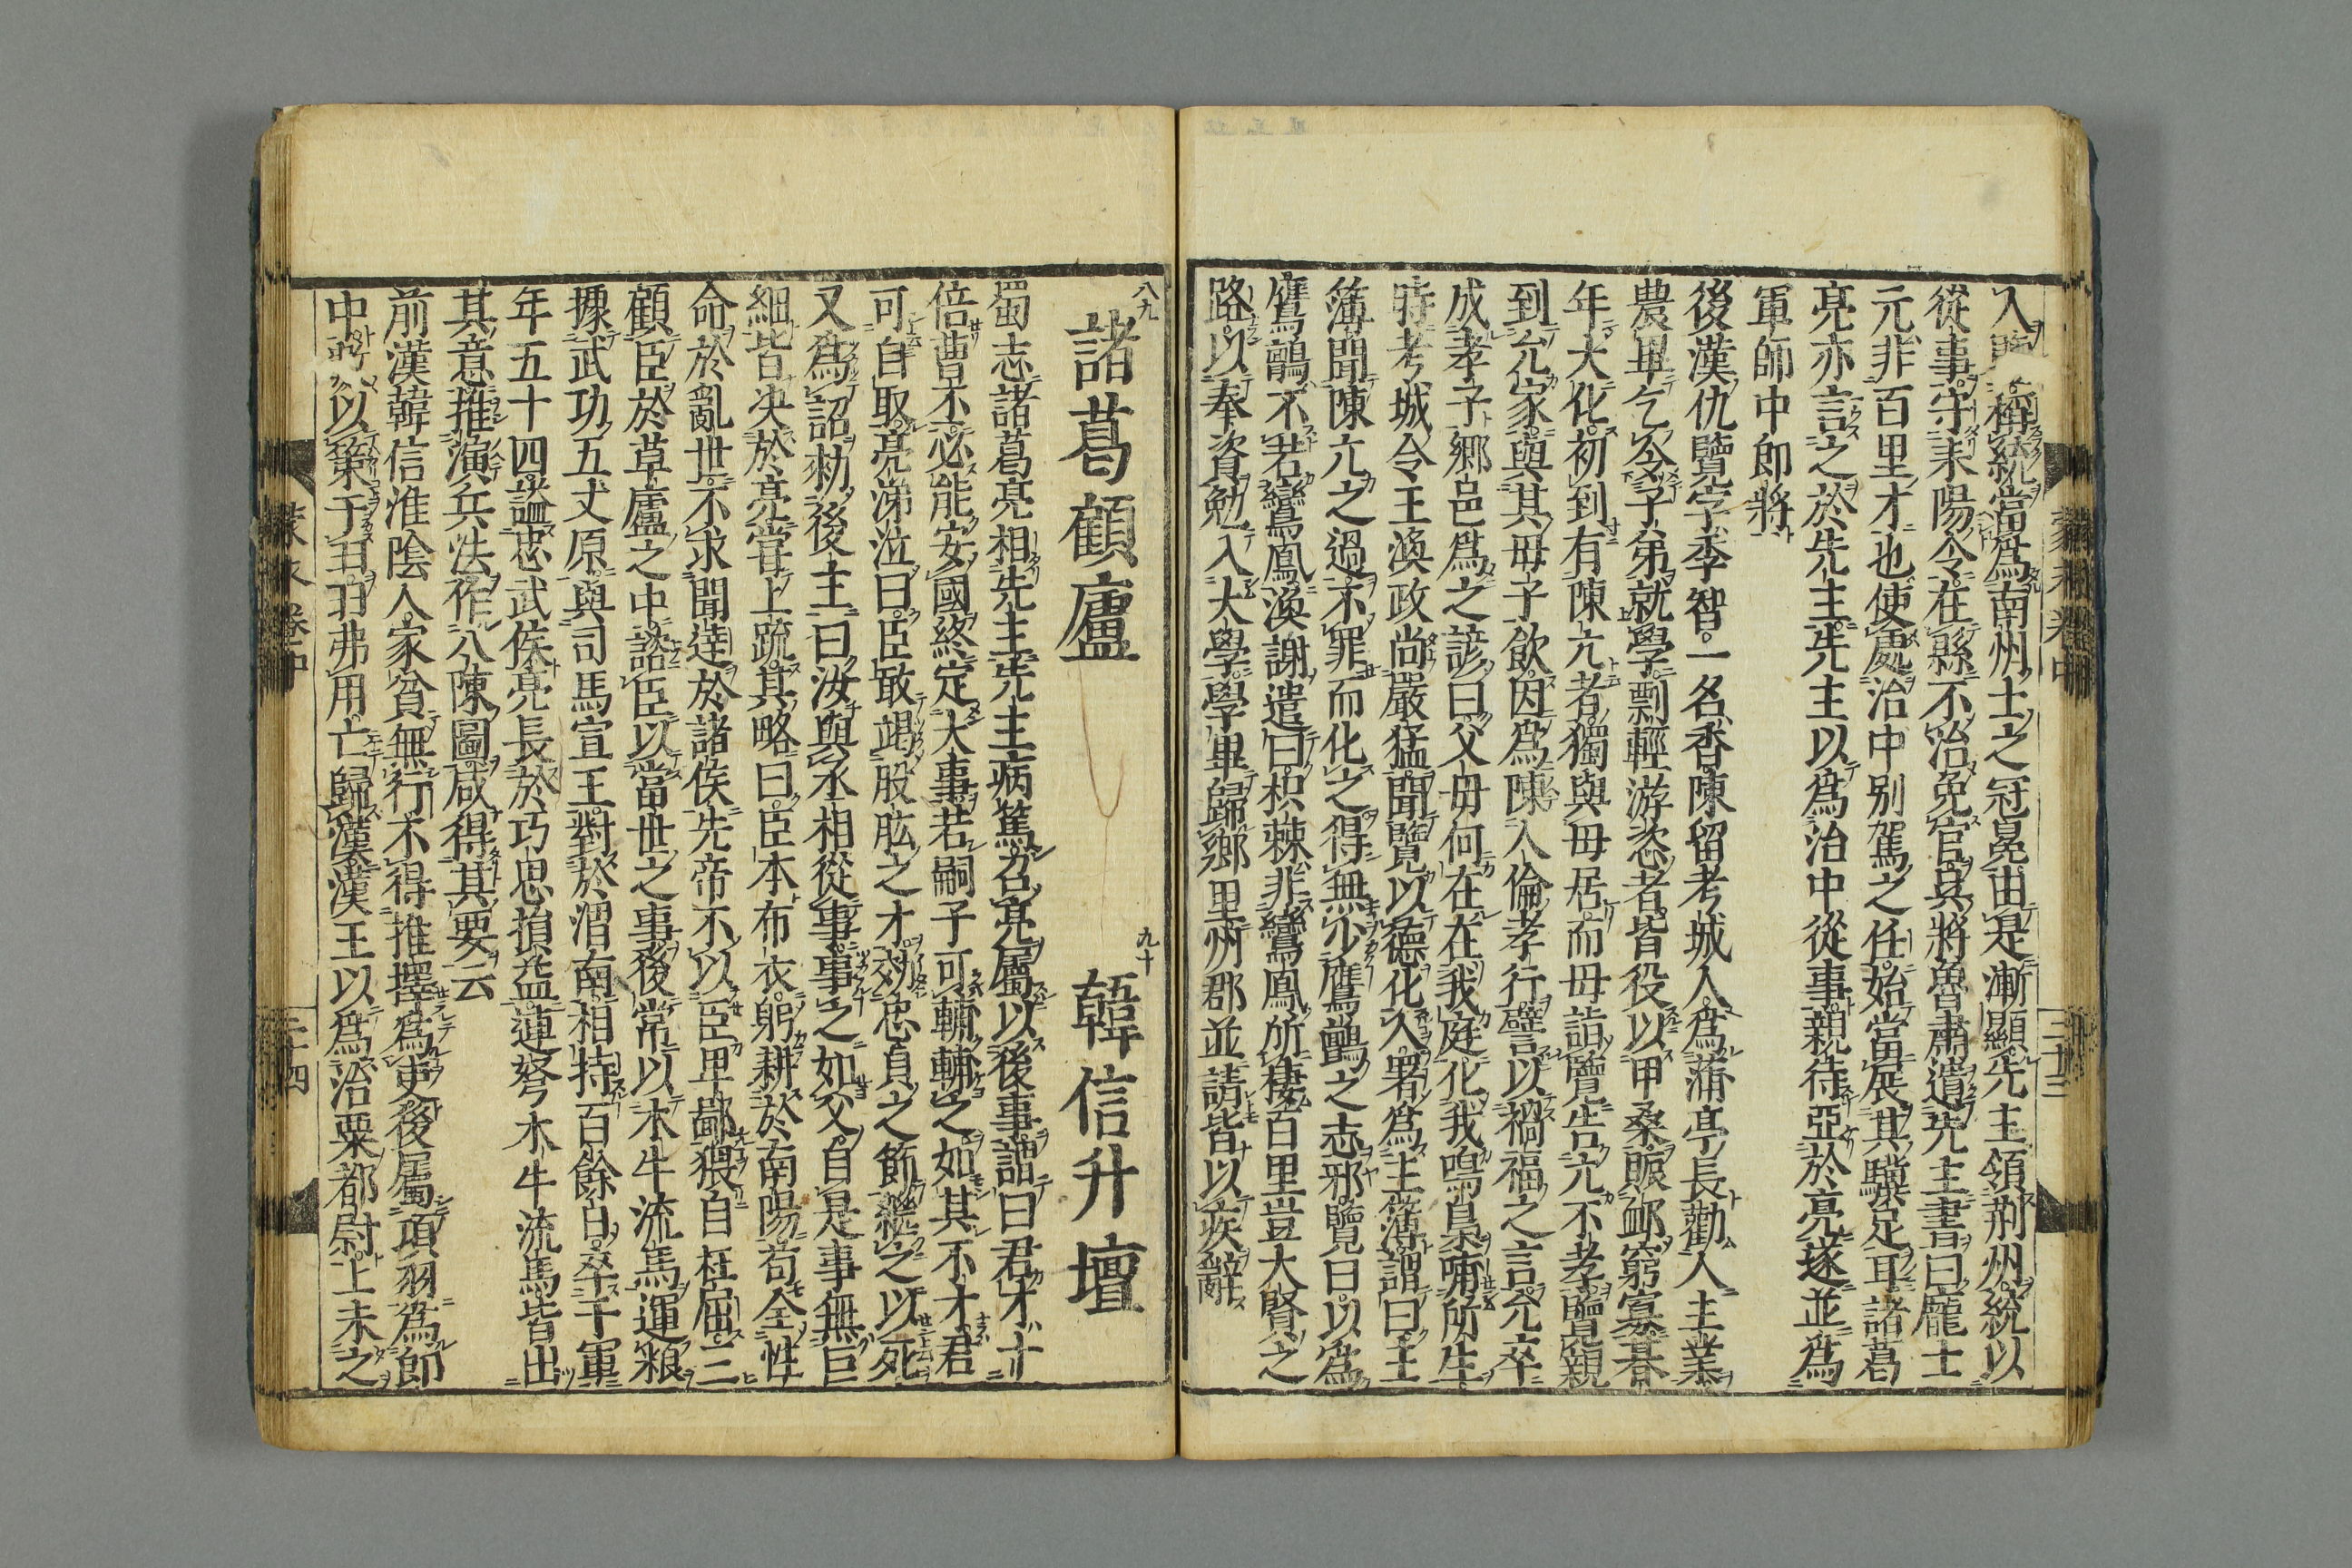 蒙求卷中
三十三
入稱統當爲南州士之冠冕由是漸顯先主領荊州統以
從事守耒陽令在縣不治免官吳將魯肅遺先主書曰龐士
元非百里才也使處治中別駕之任始當展其驥足耳諸葛
亮亦言之於先主先主以爲治中從事親待亞於亮遂並爲
軍師中郎將
後漢仇覽字季智一名香陳留考城人爲蒲亭長勸人主業
農畢乞令子弟就學剽輕游恣者皆役以甲桑賑䘏窮寡朞
年大化初到有陳元者獨與母居而母詣覽告元不孝覽親
到元家與其母子飲因爲陳人倫孝行譬言以禍福之言元卒
成孝子鄉邑爲之諺曰父母何在在我庭化我鳴梟哺所生
時考城令王渙政尚嚴猛聞覽以德化入署爲主簿謂曰主
簿聞陳元之過不罪而化之得無少鷹鸇之志邪覽曰以爲
鷹鸇不若鸞鳳渙謝遣曰枳棘非鸞鳳所棲百里豈大賢之
路以奉資勉入大學學畢歸鄉里州郡並請皆以疾辭
八九
諸葛顧廬
九十
韓信升壇
蜀志諸葛亮相先主先主病篤召亮屬以後事謂曰君才十
倍曹丕必能安國終定大事若嗣子可輔輔之如其不才君
可自取亮涕泣曰臣敢竭股肱之才効忠貞之節繼之以死
又爲詔勑後主曰汝與丞相從事事之如父自是事無巨
細皆决於亮嘗上疏其略曰臣本布衣躬耕於南陽苟全性
命於亂世不求聞達於諸侯先帝不以臣卑鄙猥自枉屈三
顧臣於草廬之中諮臣以當世之事後常以木牛流馬運粮
據武功五丈原與司馬宣王對於渭南相持百餘日卒于軍
年五十四謚忠武侯亮長於巧思損益連弩木牛流馬皆出
其意推演兵法作八陳圖咸得其要云
前漢韓信淮陰人家貧無行不得推擇爲吏後屬項羽爲郎
中以策于羽羽弗用亡歸漢漢王以爲治粟都尉上未之
蒙求卷中
三十四